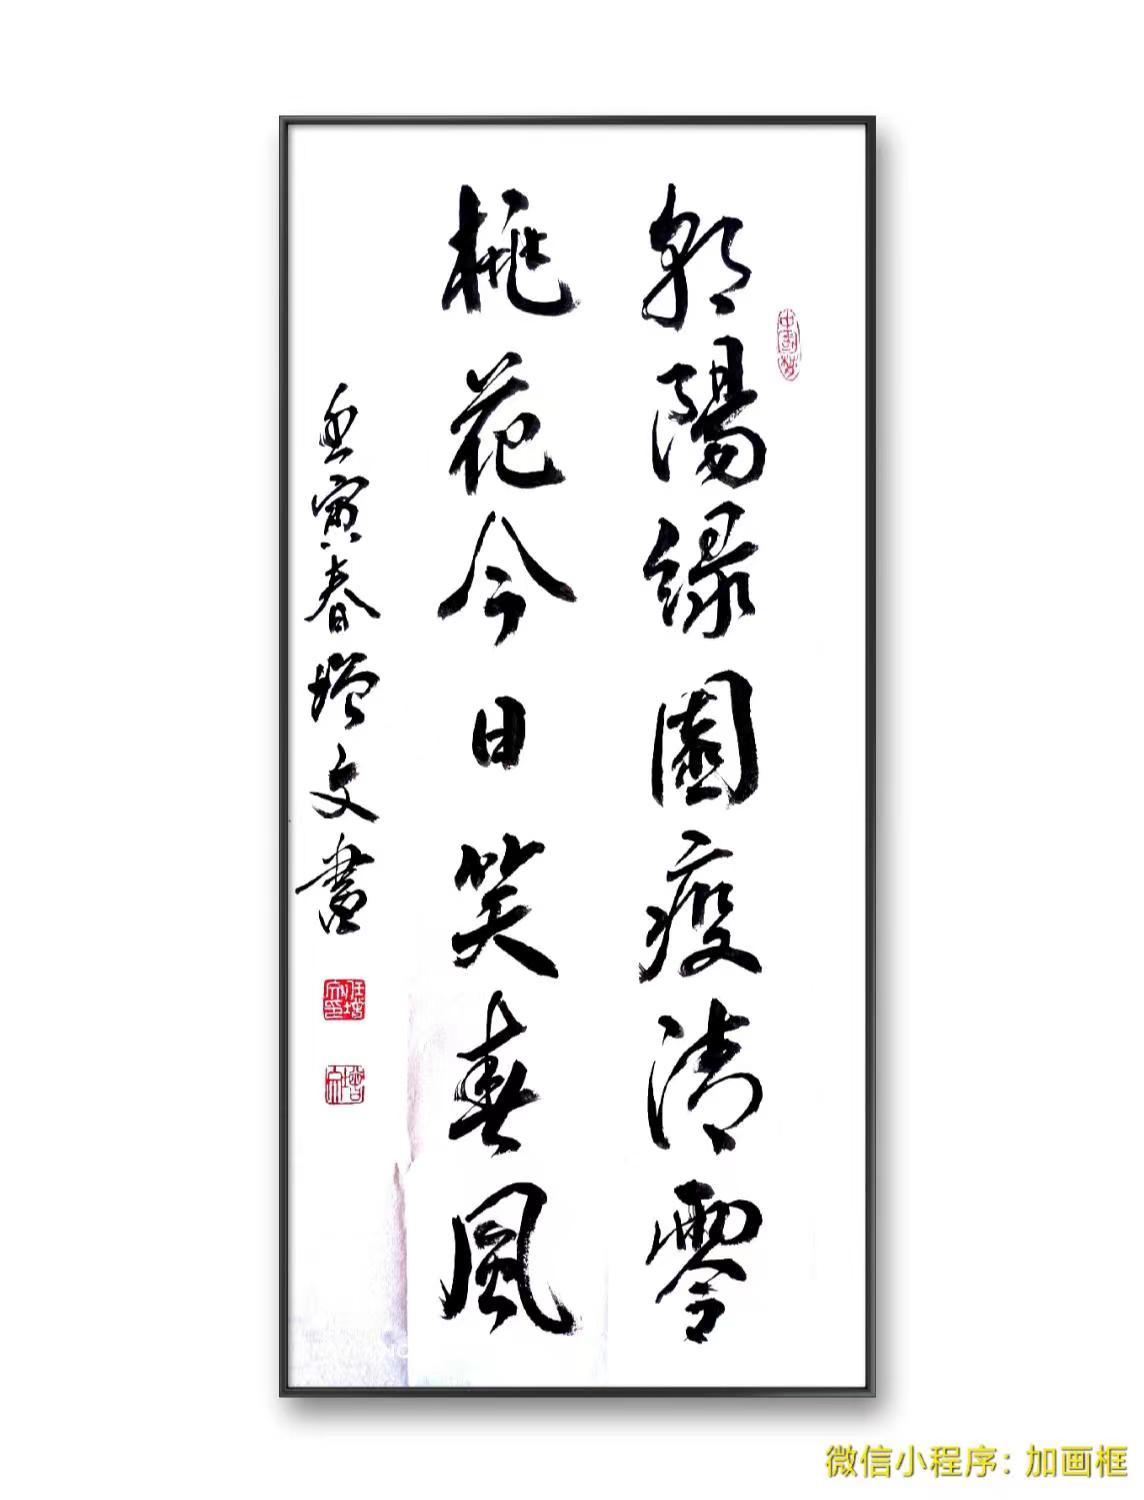 中国梦
朝陽緑園疫清零
桃花今日笑春風
壬寅春增文書
微信小程序：加画框